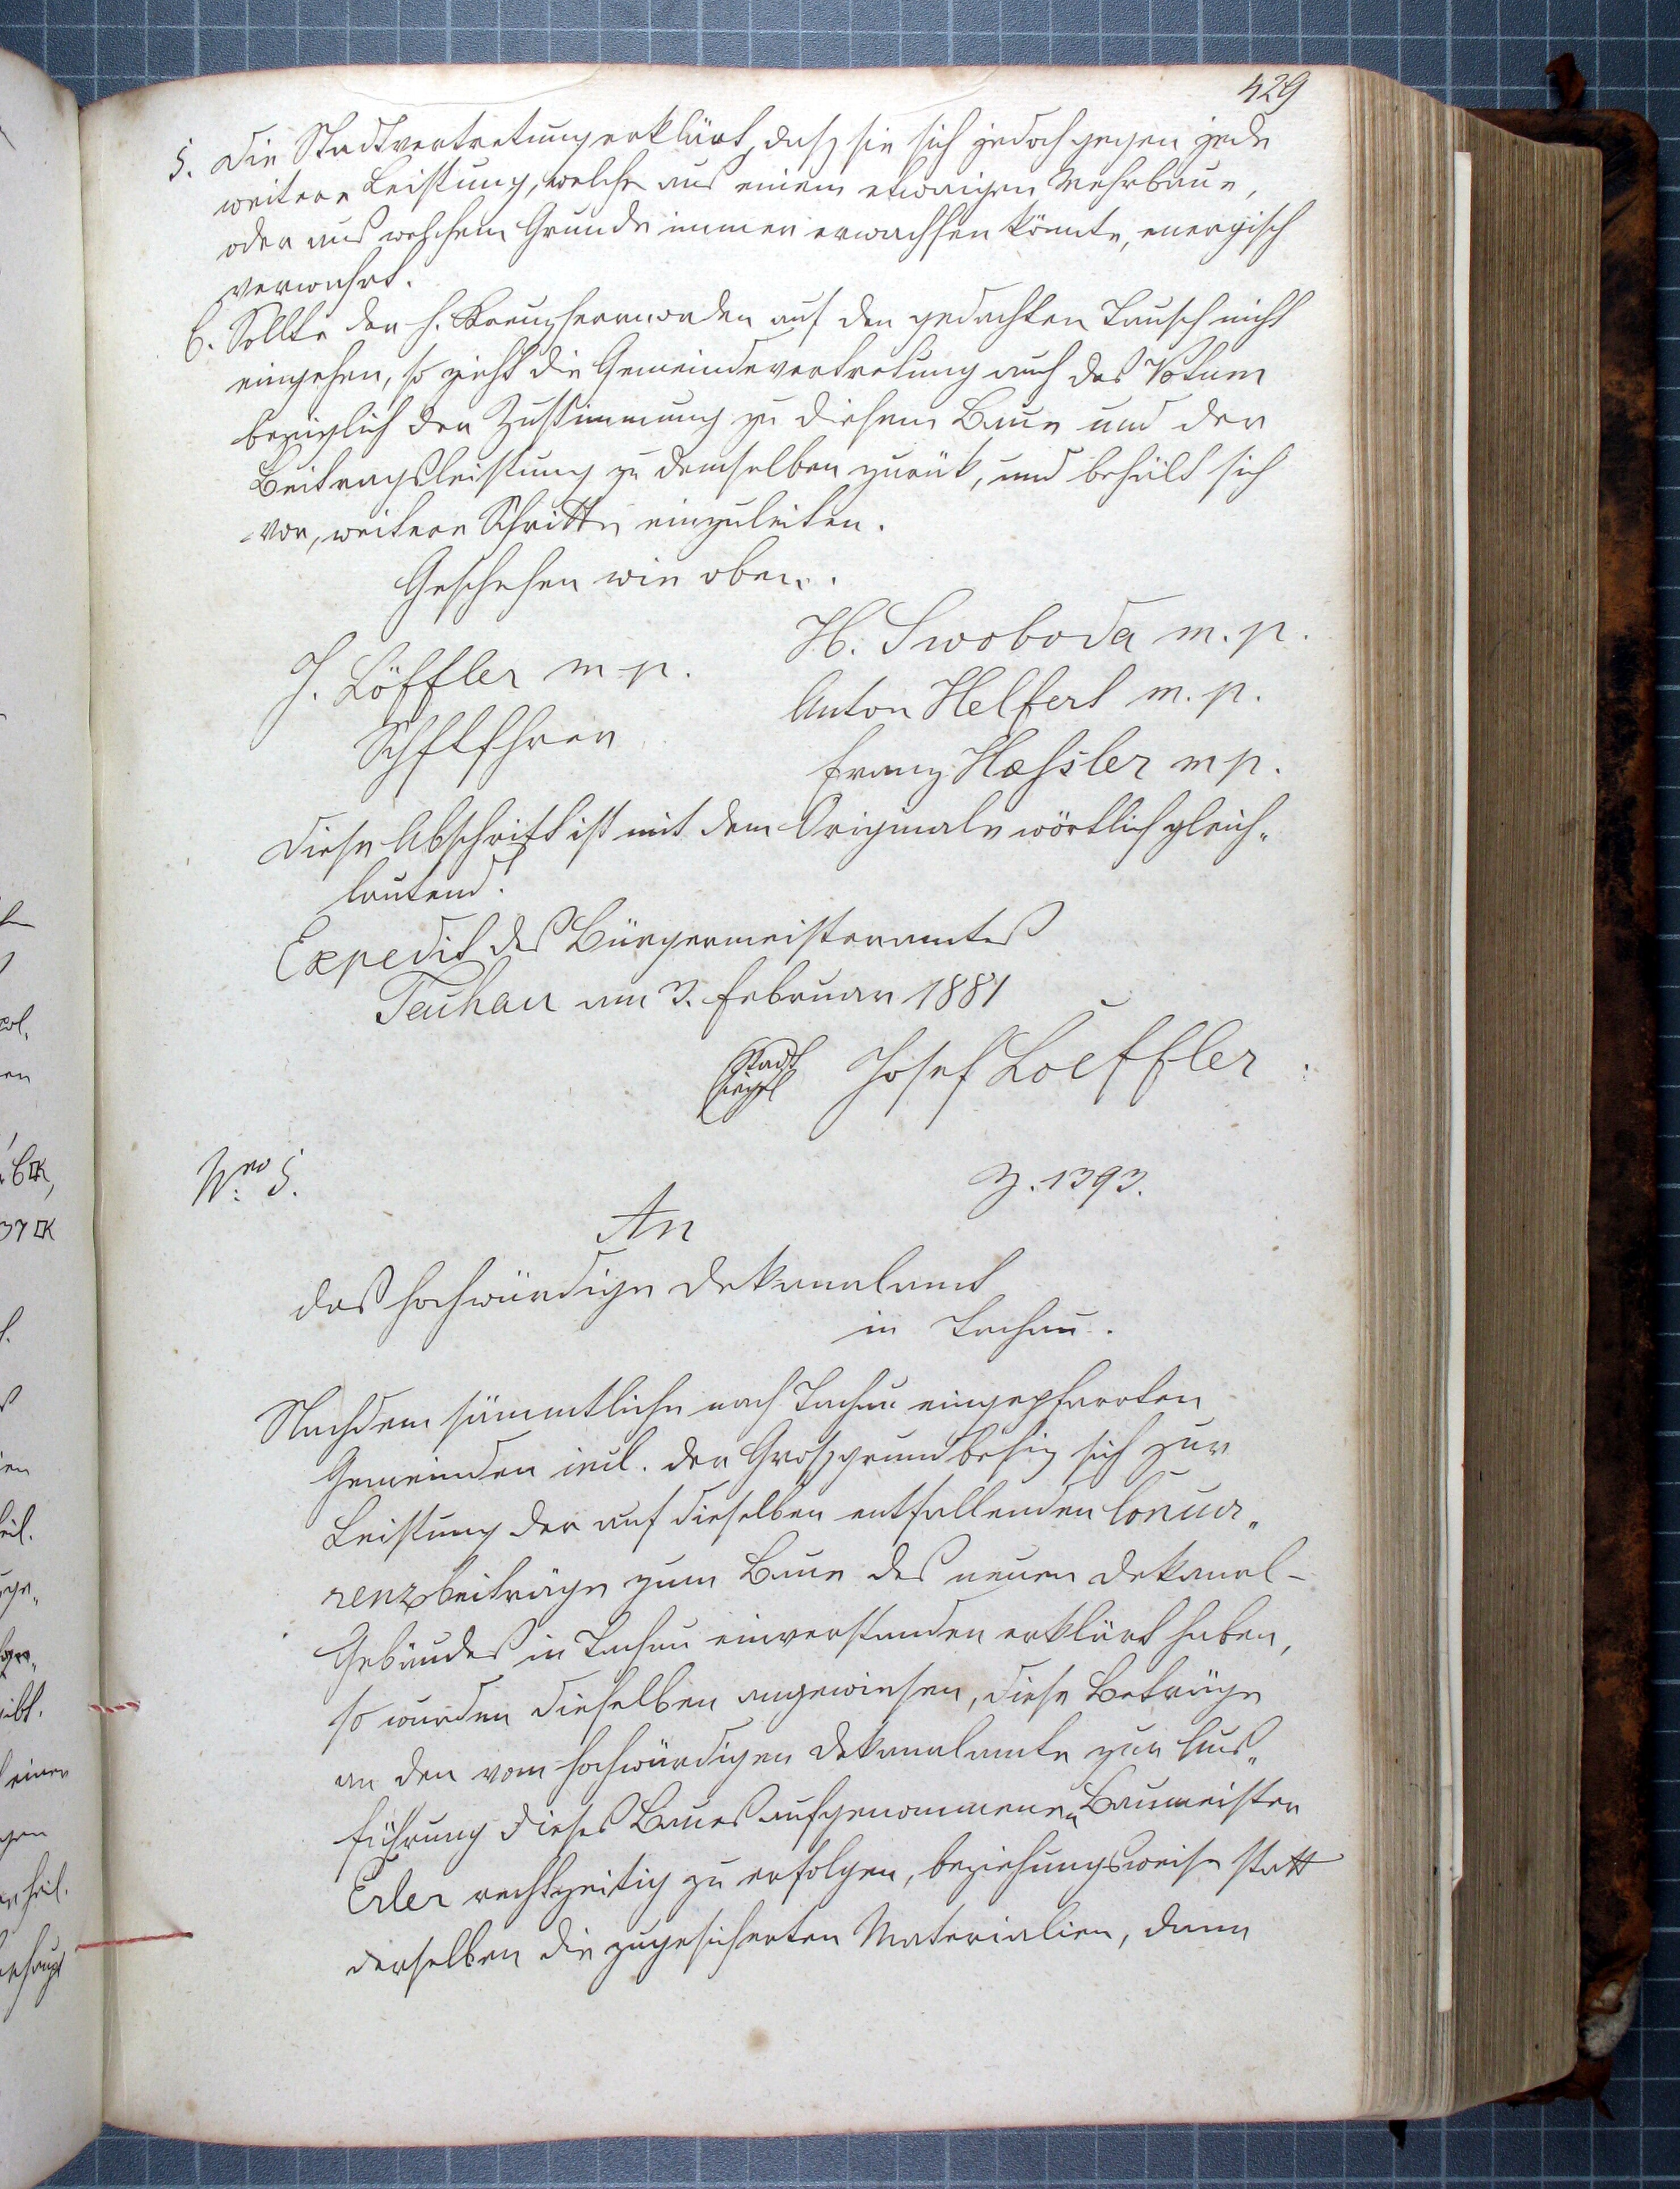 429
5. Die Stadtvertretung erklärt, dass sie sich jedoch gegen jede
weitere Leistung, welche aus einem etwaigen Mehrbaue,
oder aus welchem Grunde immer erwachsen könnte, energisch
verwahrt.
6. Sollte der h. Kreuzherrnorden auf den gedachten Tausch nicht
eingehen, so zieht die Gemeindevertretung auch das Votum
bezüglich der Zustimmung zu diesem Baue und der
Beitragsleistung zu demselben zurük, und behält sich
vor, weitere Schritte einzuleiten.
Geschehen wie oben.
H. Swoboda m. p.
J. Löffler m p.
Anton Helfert m. p.
Schftfhrer
Franz Hæssler m p.
Diese Abschrift ist mit dem Originale wörtlich gleich„
lautend.
Expedit des Bürgermeisteramtes
Tachau am 3. Februar 1881
Stadt
siegel
Josef Loeffler
Nro 5.
Z. 1393.
An
das hochwürdige Dekanalamt
in Tachau.
Nachdem sämmtliche nach Tachau eingepfarrten
Gemeinden incl. der Grossgrundbesitz sich zur
Leistung der auf dieselben entfallenden Concur„
renzbeiträge zum Baue des neuen Dekanal-
Gebäudes in Tachau einverstanden erklärt haben,
so wurden dieselben angewiesen, diese Beträge
an den vom hochwürdigen Dekanalamte zur Aus„
führung dieses Baues aufgenommenen Baumeister
Erler rechtzeitig zu erfolgen, beziehungsweise statt
derselben die zugesicherten Materialien, dann